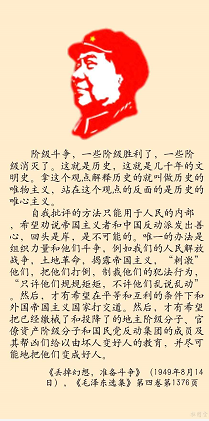 阶级斗争，一些阶级胜利了，一些阶
级消灭了。这就是历史，这就是几千年的文
明史。拿这个观点解释历史的就叫做历史的
唯物主义，站在这个观点的反面的是历史的
唯心主义。
自我批评的方法只能用于人民的内部
，希望劝说帝国主义者和中国反动派发出善
心，回头是岸，是不可能的。唯一的办法是
组织力量和他们斗争，例如我们的人民解放
战争，土地革命，揭露帝国主义，“刺激”
他们，把他们打倒，制裁他们的犯法行为，
“只许他们规规矩矩，不许他们乱说乱动”
。然后，才有希望在平等和互利的条件下和
外国帝国主义国家打交道。然后，才有希望
把已经缴械了和投降了的地主阶级分子、官
僚资产阶级分子和国民党反动集团的成员及
其帮凶们给以由坏人变好人的教育，并尽可
能地把他们变成好人。
《丢掉幻想，准备斗争》（1949年8月14
日），《毛泽东选集》第四卷第1376页